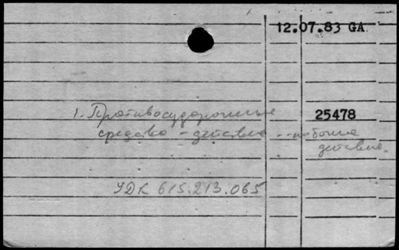 12.07.83 GA
1. Противосудорожные 25478
средства - действие -- побочное
действие.
УДК 615.213.065